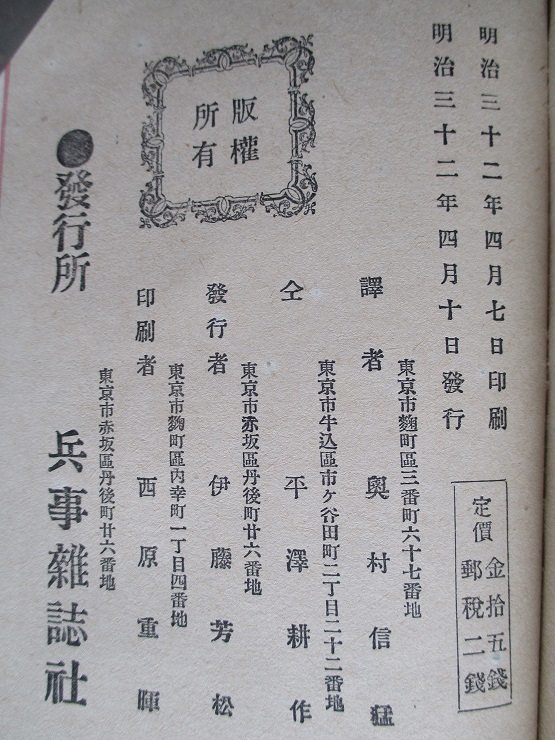 明治三十二年四月七日印刷
明治三十二年四月十日發行
定價 金拾五錢
郵稅二錢
東京市麴町區三番町六十七番地
譯者 奧村信猛
東京市牛込區市ケ谷田町二丁目二十二番地
仝 平澤耕作
東京市赤坂區丹後町廿六番地
發行者 伊藤芳松
東京市麴町區內幸町一丁目四番地
印刷者 西原重暉
版權
所有
東京市赤坂區丹後町廿六番地
●發行所 兵事雜誌社